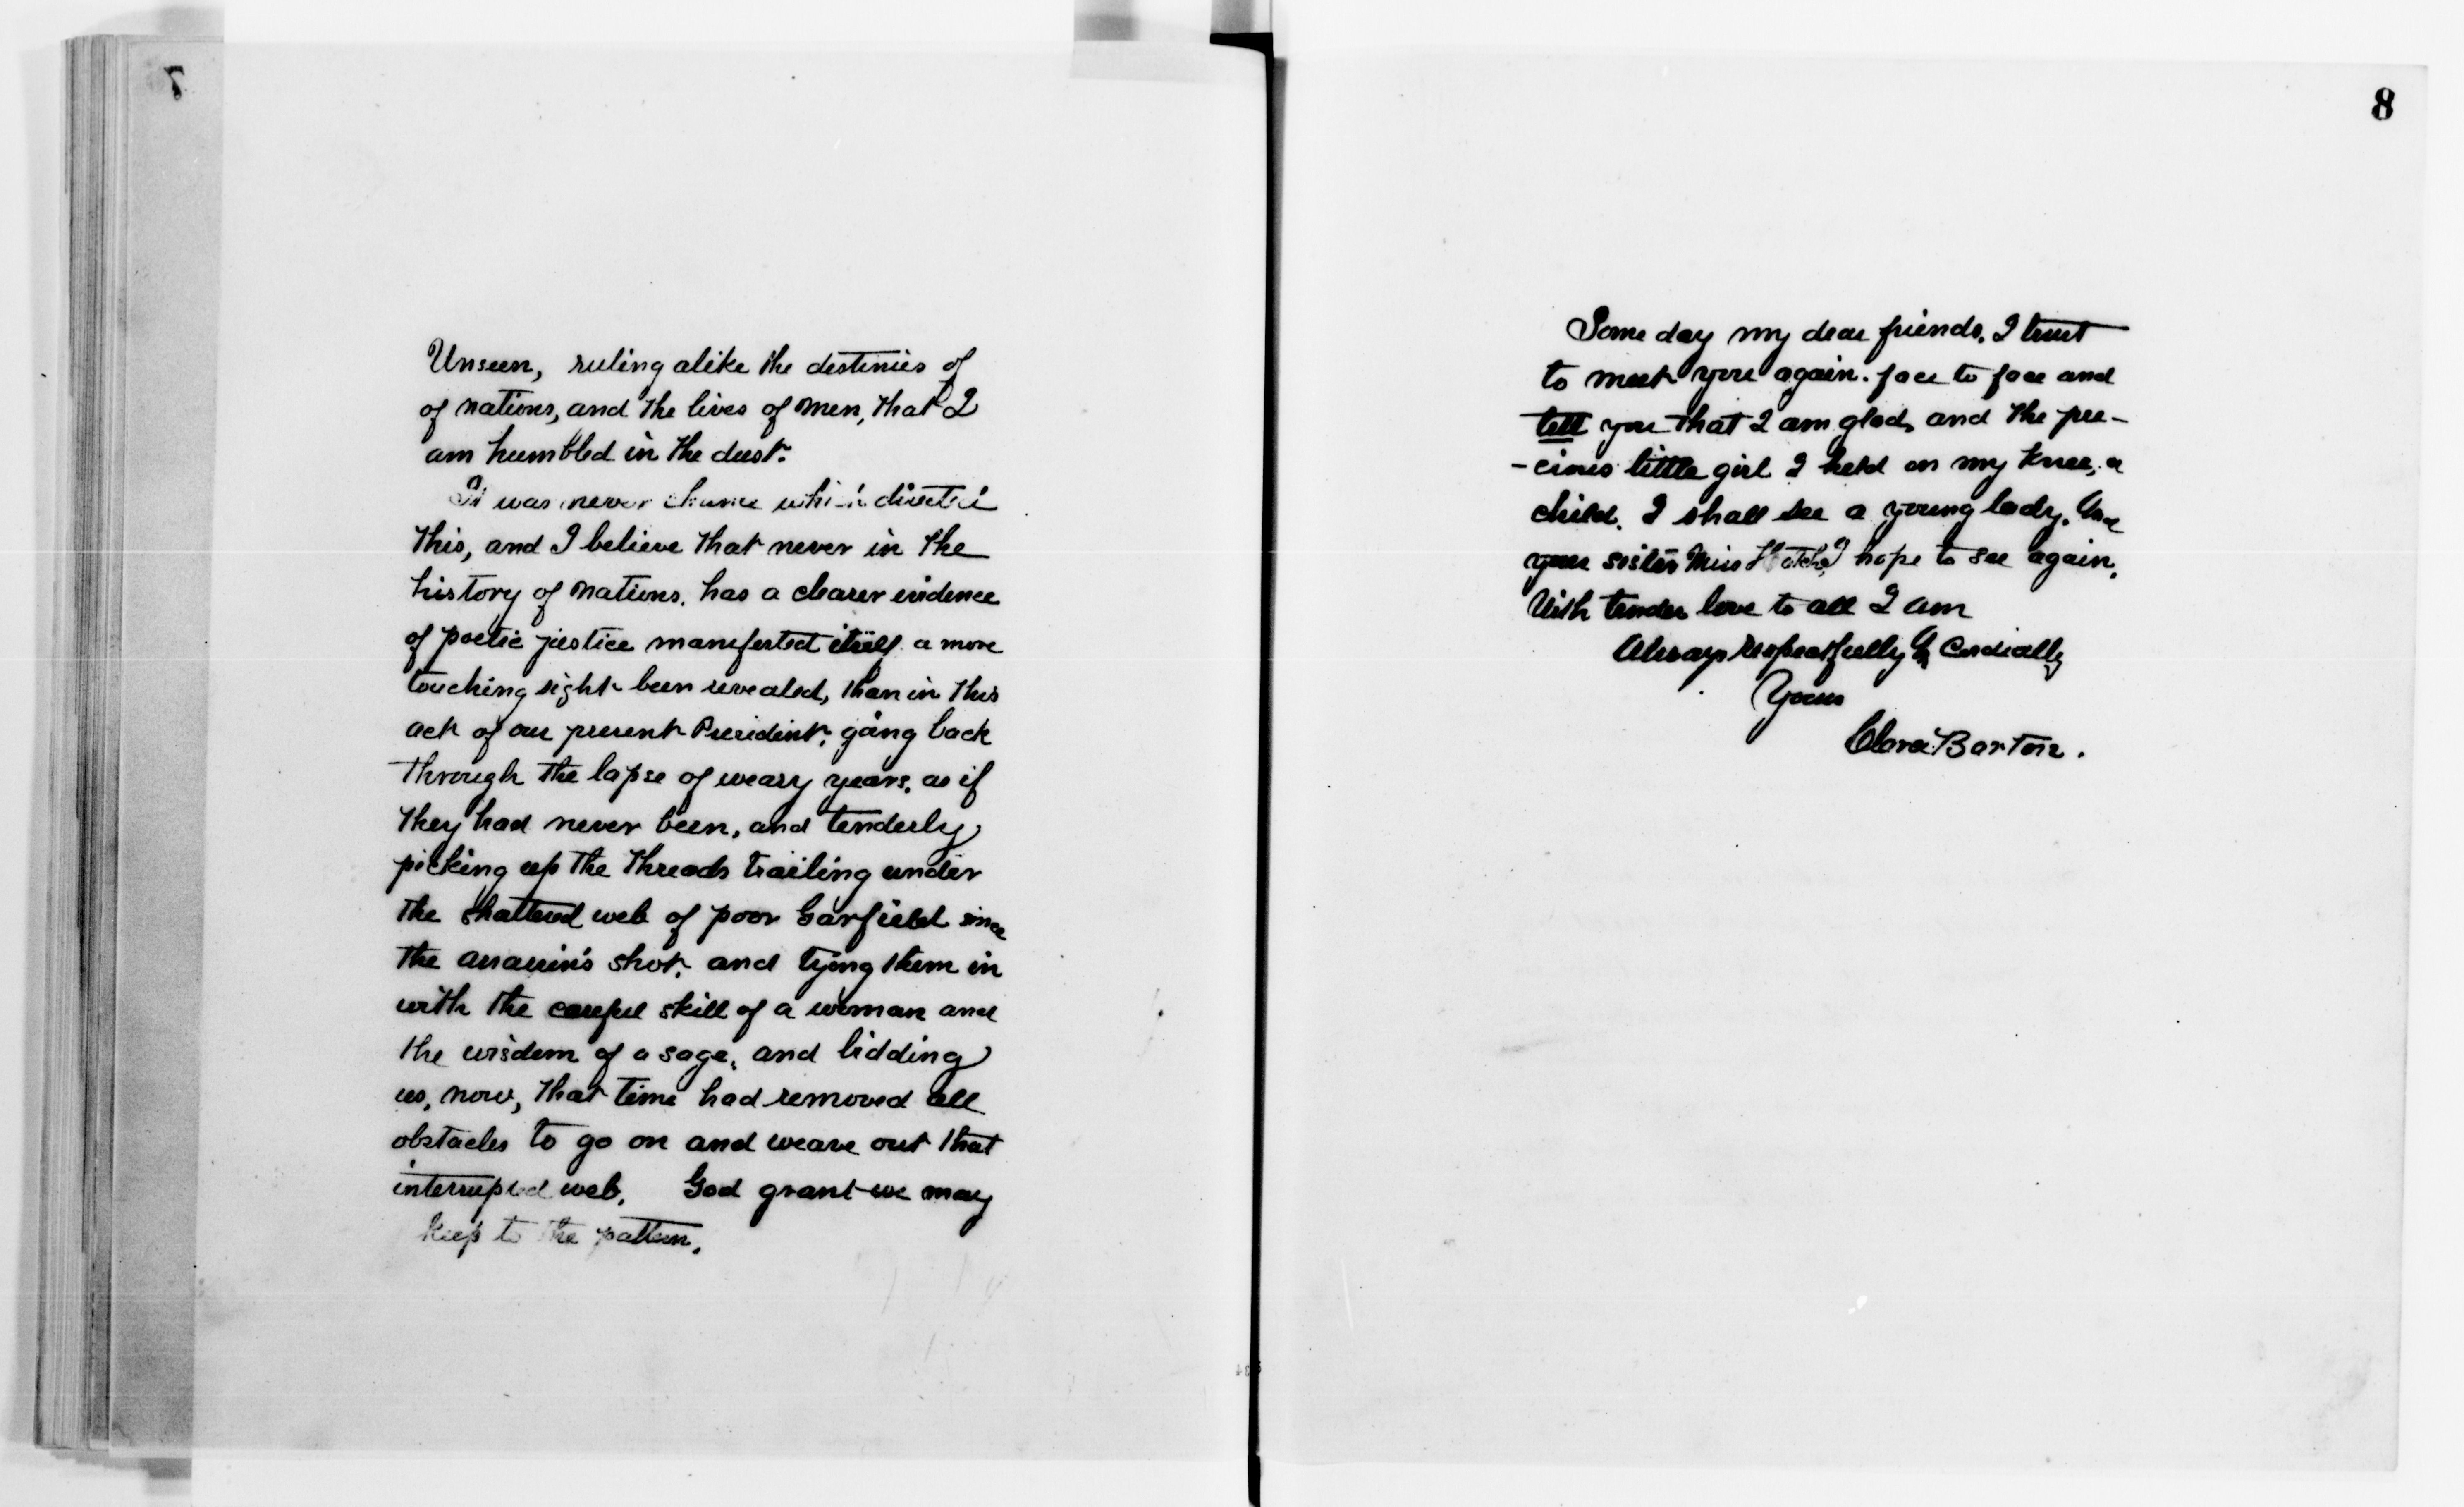 7
Unseen, ruling alike the destinies of
of nations, and the lives of men, that I
am humbled in the dust.
It was never chance which directed
this, and I believe that never in the
history of nations, has a clearer evidence
of poetic justice manifested itself a more
touching sight been revealed, than in this
act of our present President, going back
through the lapse of weary years, as if
they had never been, and tenderly
picking up the threads trailing under
the shattered web of poor Garfield since
the assassin's shot, and tying them in
with the careful skill of a woman and
the wisdom of a sage, and bidding
us, now, that time had removed all
obstacles to go on and weave out that
interrupted web. God grant we may
keep to the pattern.
8
Some day my dear friends, I trust
to meet you again. face to face and
tell you that I am glad, and the pre-
-cious little girl I held on my knee, a
child. I shall see a young lady. And
your sister Miss I hope to see again.
With tender love to all I am
Always respectfully & Cordially
Yours
Clara Barton.